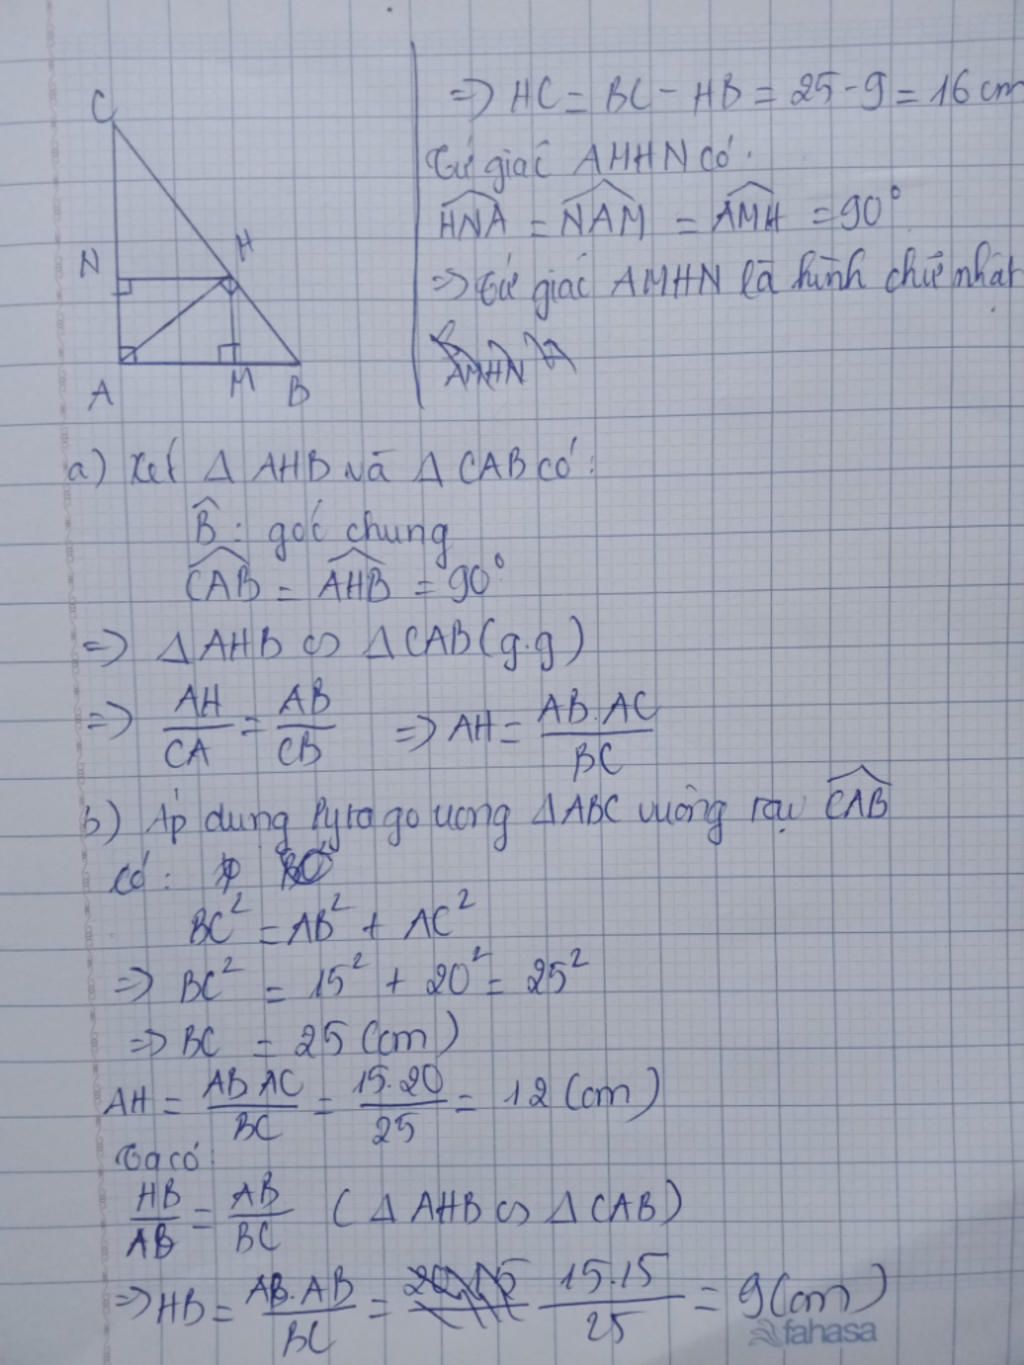 C
N
H
A
M
B
=> HC = BC - HB = 25 - 9 = 16 cm
Tứ giác AMHN có:
HNA = NAM = AMH = 90°
=> Tứ giác AMHN là hình chữ nhật
AMHN
a) Xét Δ AHB và Δ CAB có:
B̂ : góc chung
CAB = AHB = 90°
=> Δ AHB ∽ Δ CAB (g.g)
=> AH/CA = AB/CB => AH = AB.AC/BC
b) Áp dụng Pytago trong ΔABC vuông tại CAB
có:
BC² = AB² + AC²
=> BC² = 15² + 20² = 25²
=> BC = 25 (cm)
AH = AB AC/BC = 15.20/25 = 12 (cm)
Ta có:
HB/AB = AB/BC (Δ AHB ∽ Δ CAB)
=> HB = AB.AB/BC = 15.15/25 = 9 (cm)
fahasa